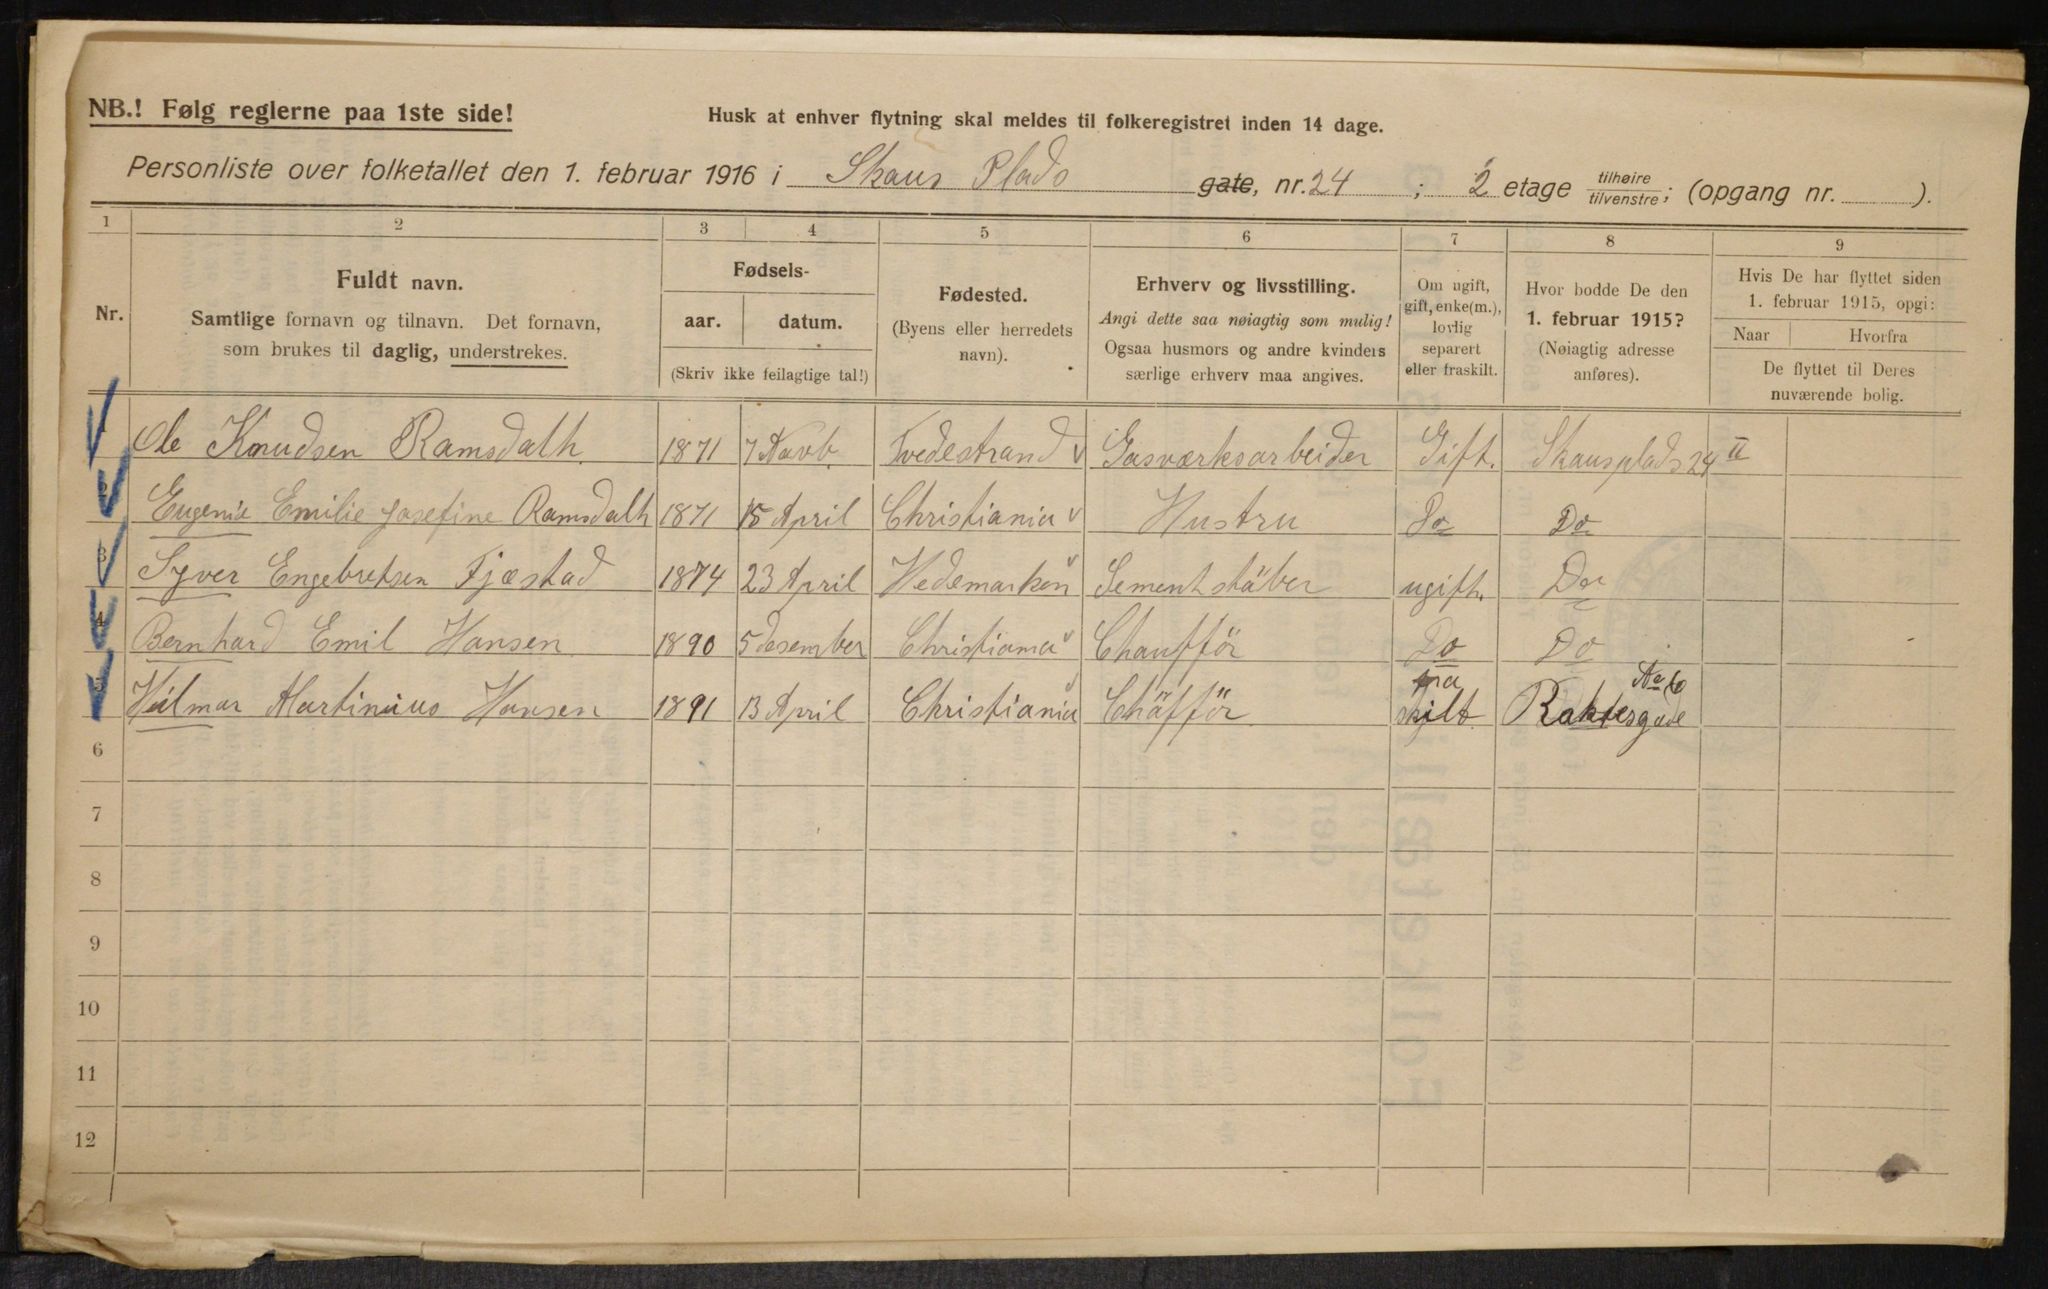 NB.! Følg reglerne paa 1ste side!
Husk at enhver flytning skal meldes til folkeregistret inden 14 dage.
Personliste over folketallet den 1. februar 1916 i Skaus Plads gate, nr. 24 ; 2 etage tilhøire/tilvenstre; (opgang nr. ).
1 2 3 4 5 6 7 8 9
Nr.
Fuldt navn.
Samtlige fornavn og tilnavn. Det fornavn,
som brukes til daglig, understrekes.
Fødsels-
aar. datum.
(Skriv ikke feilagtige tal!)
Fødested.
(Byens eller herredets
navn).
Erhverv og livsstilling.
Angi dette saa nøiagtig som mulig!
Ogsaa husmors og andre kvinders
særlige erhverv maa angives.
Om ugift,
gift, enke(m.),
lovlig
separert
eller fraskilt.
Hvor bodde De den
1. februar 1915?
(Nøiagtig adresse
anføres).
Hvis De har flyttet siden
1. februar 1915, opgi:
Naar Hvorfra
De flyttet til Deres
nuværende bolig.
Ole Knudsen Ramsdalh. 1871 7 Novb. Tvedestrand Gasværksarbeider Gift. Skausplads 24 II
2 Eugenie Emilie Josefine Ramsdalh 1871 15 April Christiania Hustru Do Do
3 Syver Engebretsen Fjæstad 1874 23 April Hedemarken Sementstöber ugift. Do
4 Bernhard Emil Hansen 1890 5 desember Christiania Chafför Do Do
5 Hilmar Martinius Hansen 1891 13 April Christiania Chäfför fra skilt
6
7
8
9
10
11
12